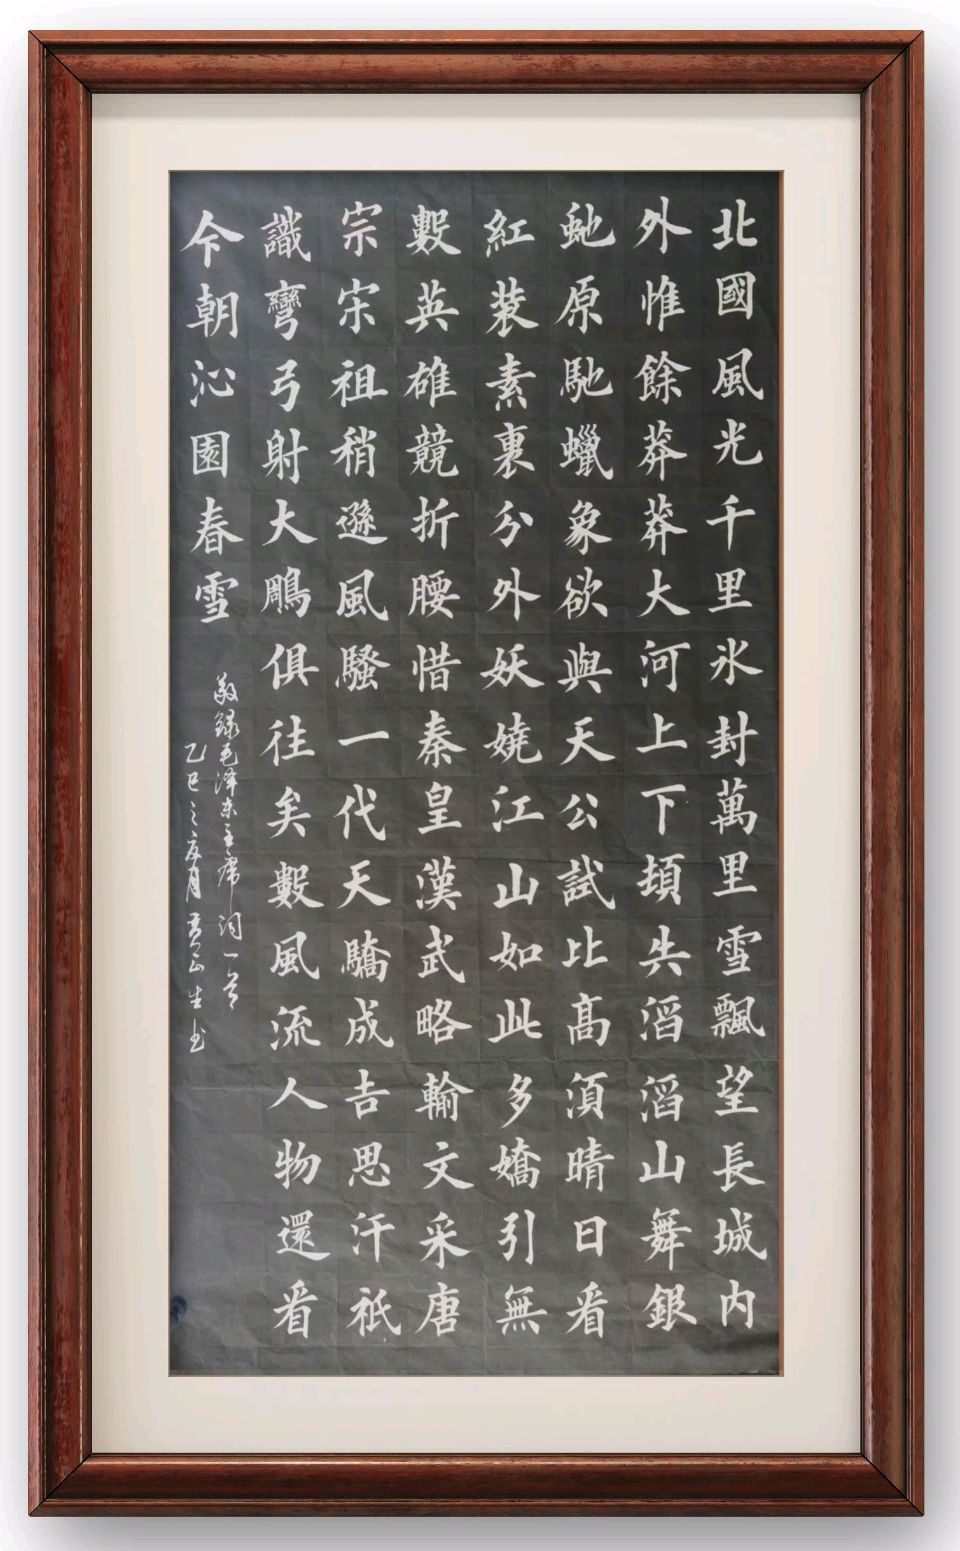 北國風光千里氷封萬里雪飄望長城内
外惟餘莽莽大河上下頃失滔滔山舞銀
虵原馳蠟象欲與天公試比高須晴日看
紅装素裹分外妖嬈江山如此多嬌引無
數英雄競折腰惜秦皇漢武略輸文采唐
宗宋祖稍遜風騷一代天驕成吉思汗衹
識彎弓射大鵰俱往矣數風流人物還看
今朝沁園春雪
敬録毛澤东主席词一首
乙巳之 月 生书